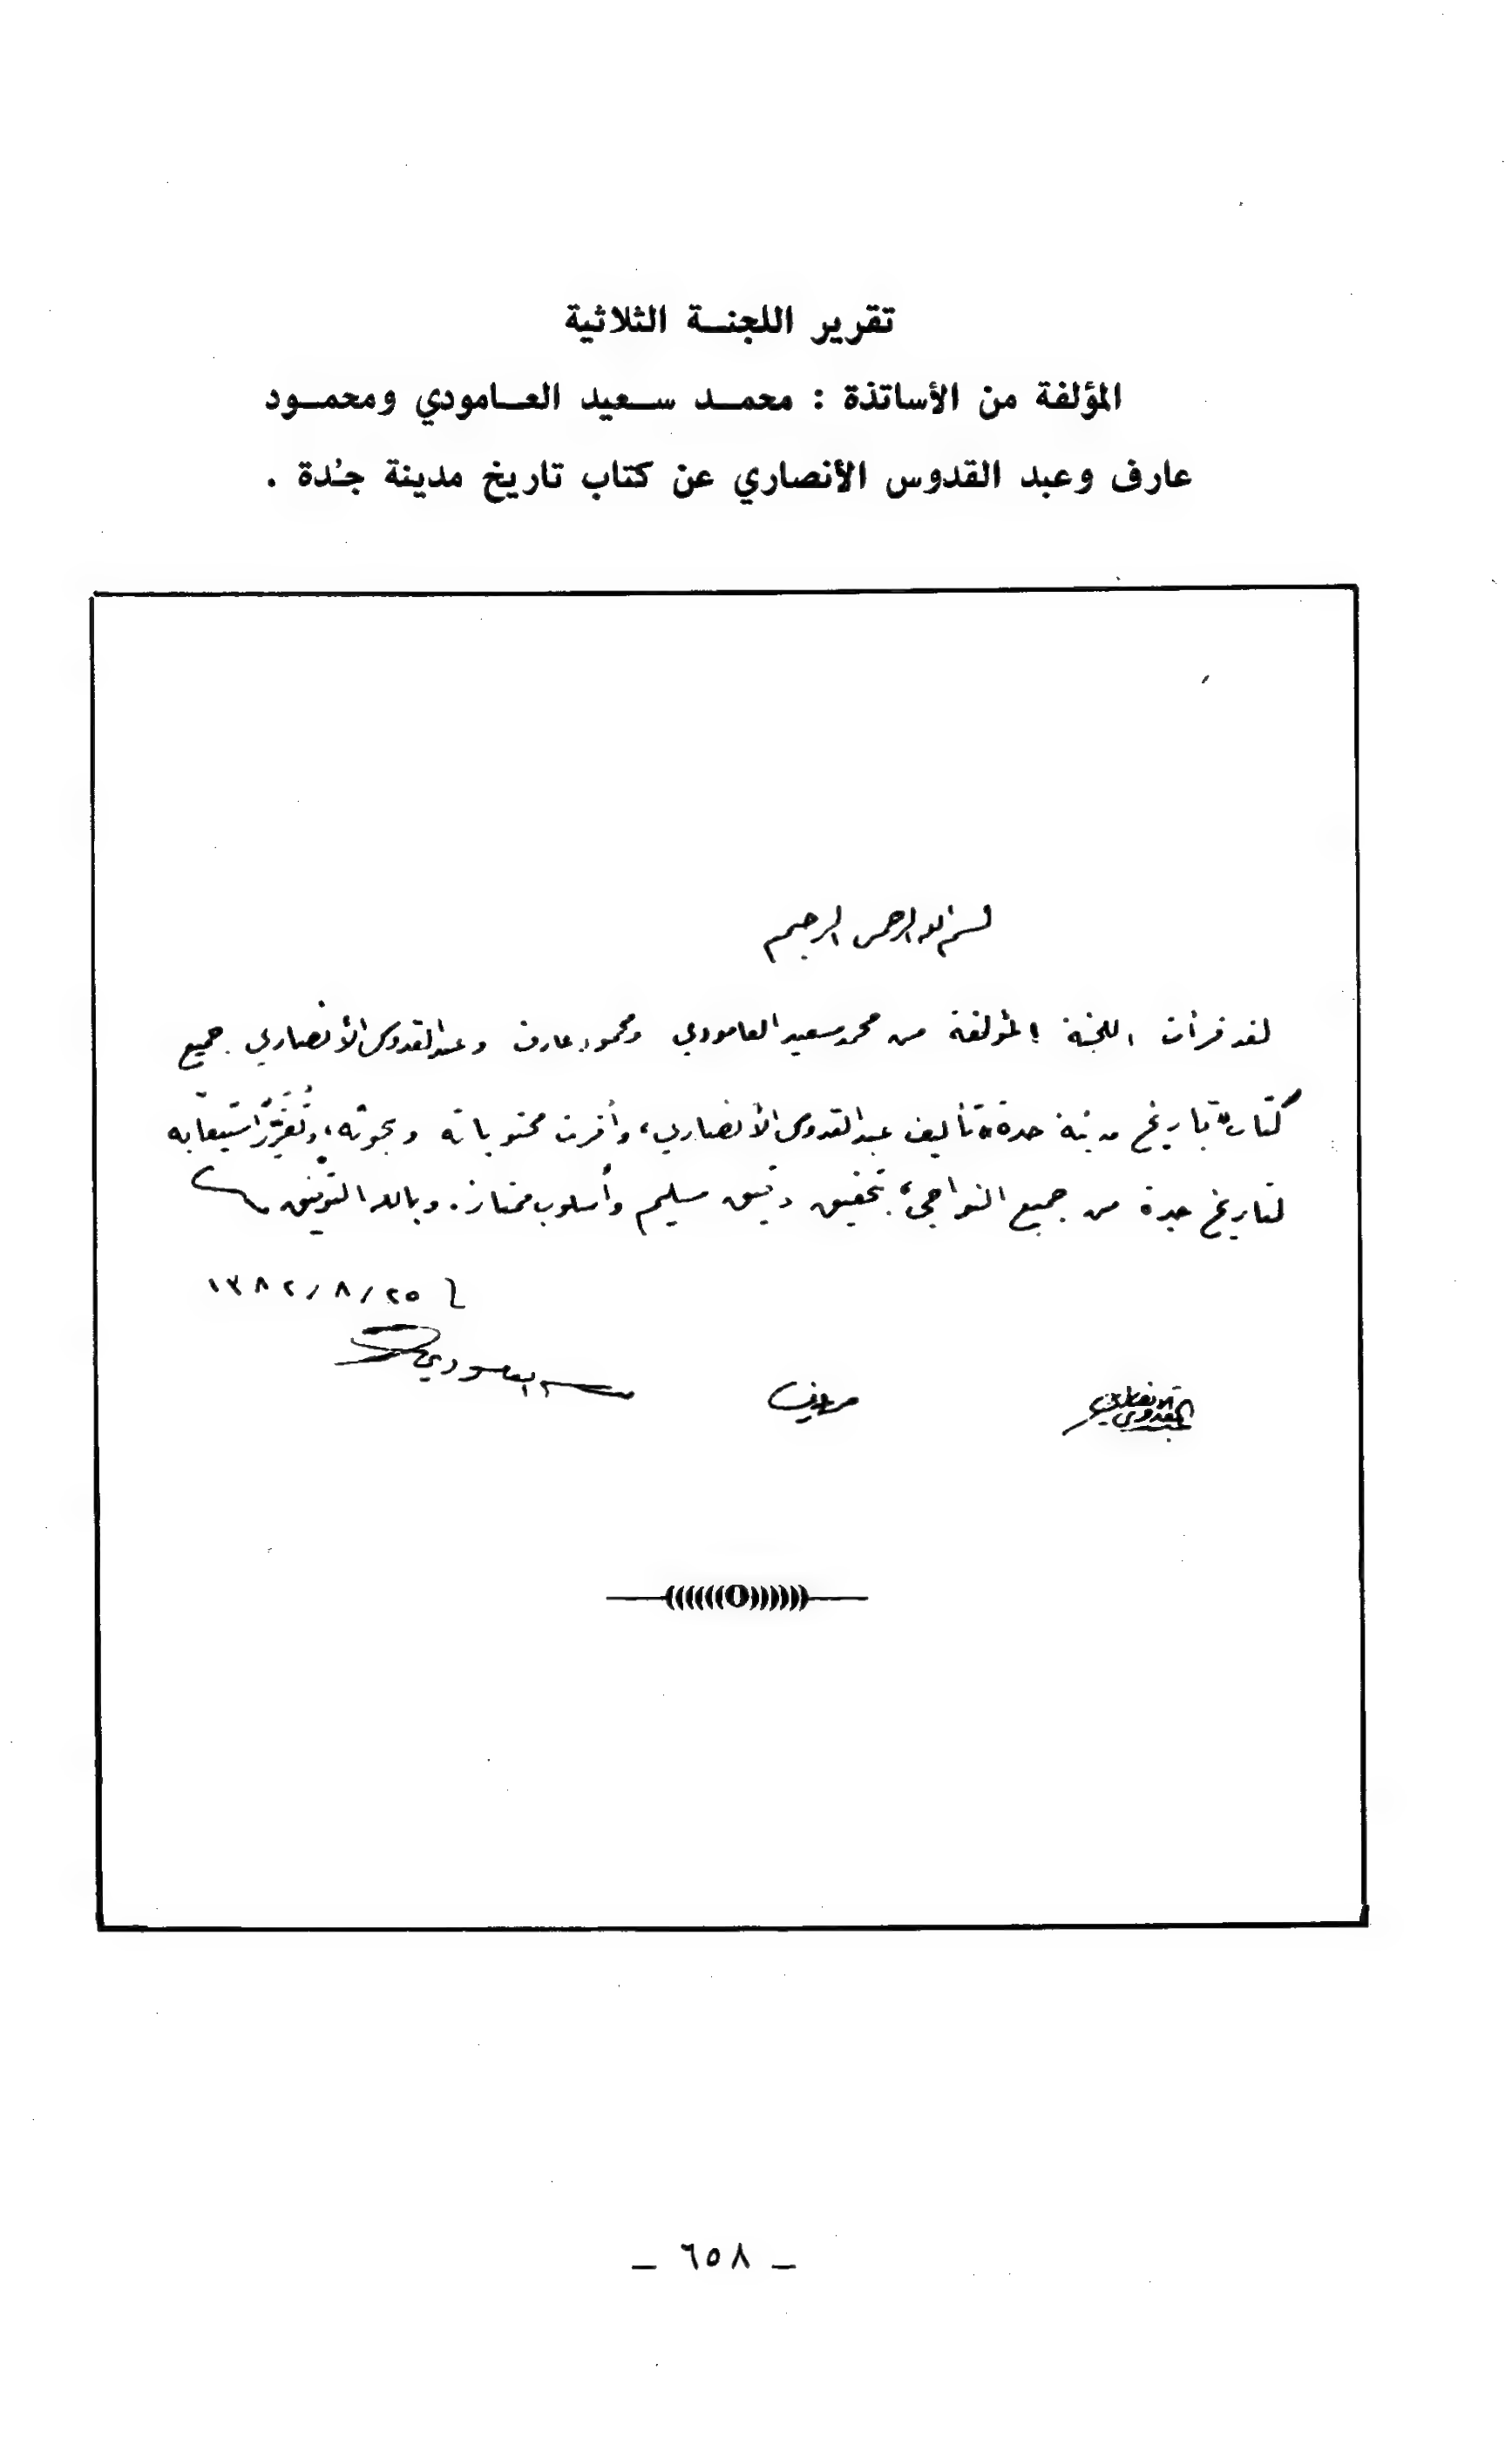 تقرير اللجنة الثلاثية
المؤلفة من الأساتذة : محمد سعيد العامودي ومحمود
عارف وعبد القدوس الأنصاري عن كتاب تاريخ مدينة جُدة .
بسم الله الرحمن الرحيم
لقد قرأت اللجنة المؤلفة من محمد سعيد العامودي ومحمود عارف وعبد القدوس الأنصاري جميع
كتاب "تاريخ مدينة جدة" تأليف عبد القدوس الأنصاري، وأقرت محتوياته وبحوثه، وتُقَرِّرُ استيعابه
لتاريخ جدة من جميع النواحي، بتحقيق دقيق سليم وأسلوب ممتاز. وبالله التوفيق
٢٥/٨/١٣٨٢
عبد القدوس الأنصاري م عارف العامودي
ـ ٦٥٨ ـ